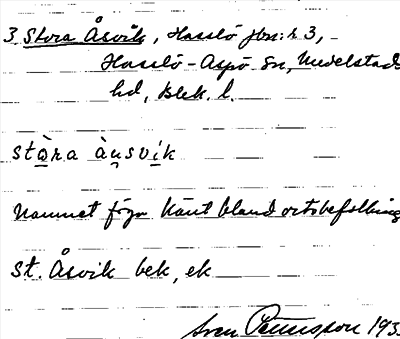 3 Stora Åsvik, Hasslö jbn: r 3,
Hasslö-Aspö sn, Medelstads
hd, Blek. l.
stò̱ra àu̯svi̱k
Namnet föga känt bland ortsbefolkning
St. Åsvik bek, ek
Sven Petersson 193